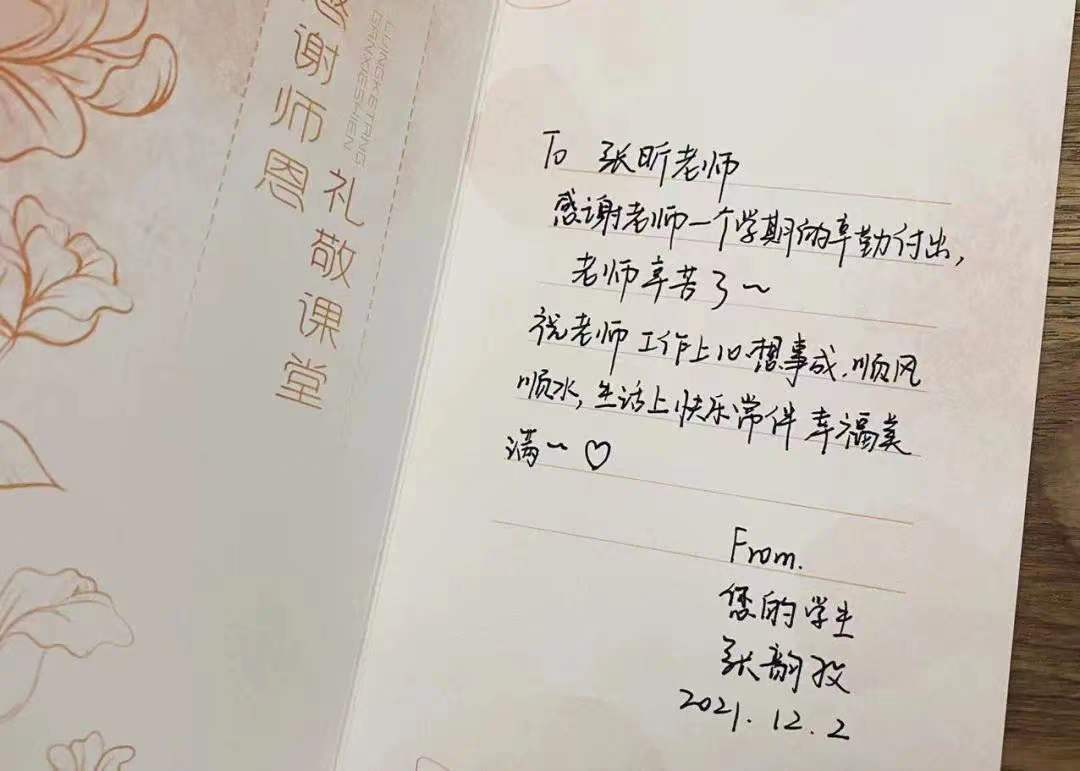 感谢师恩
礼敬课堂
LIJINGKETANG
GANXIESHIEN
To 张昕老师
感谢老师一个学期的辛勤付出，
老师辛苦了～
祝老师工作上心想事成，顺风
顺水，生活上快乐常伴 幸福美
满～♡
From.
您的学生
张韵孜
2021.12.2